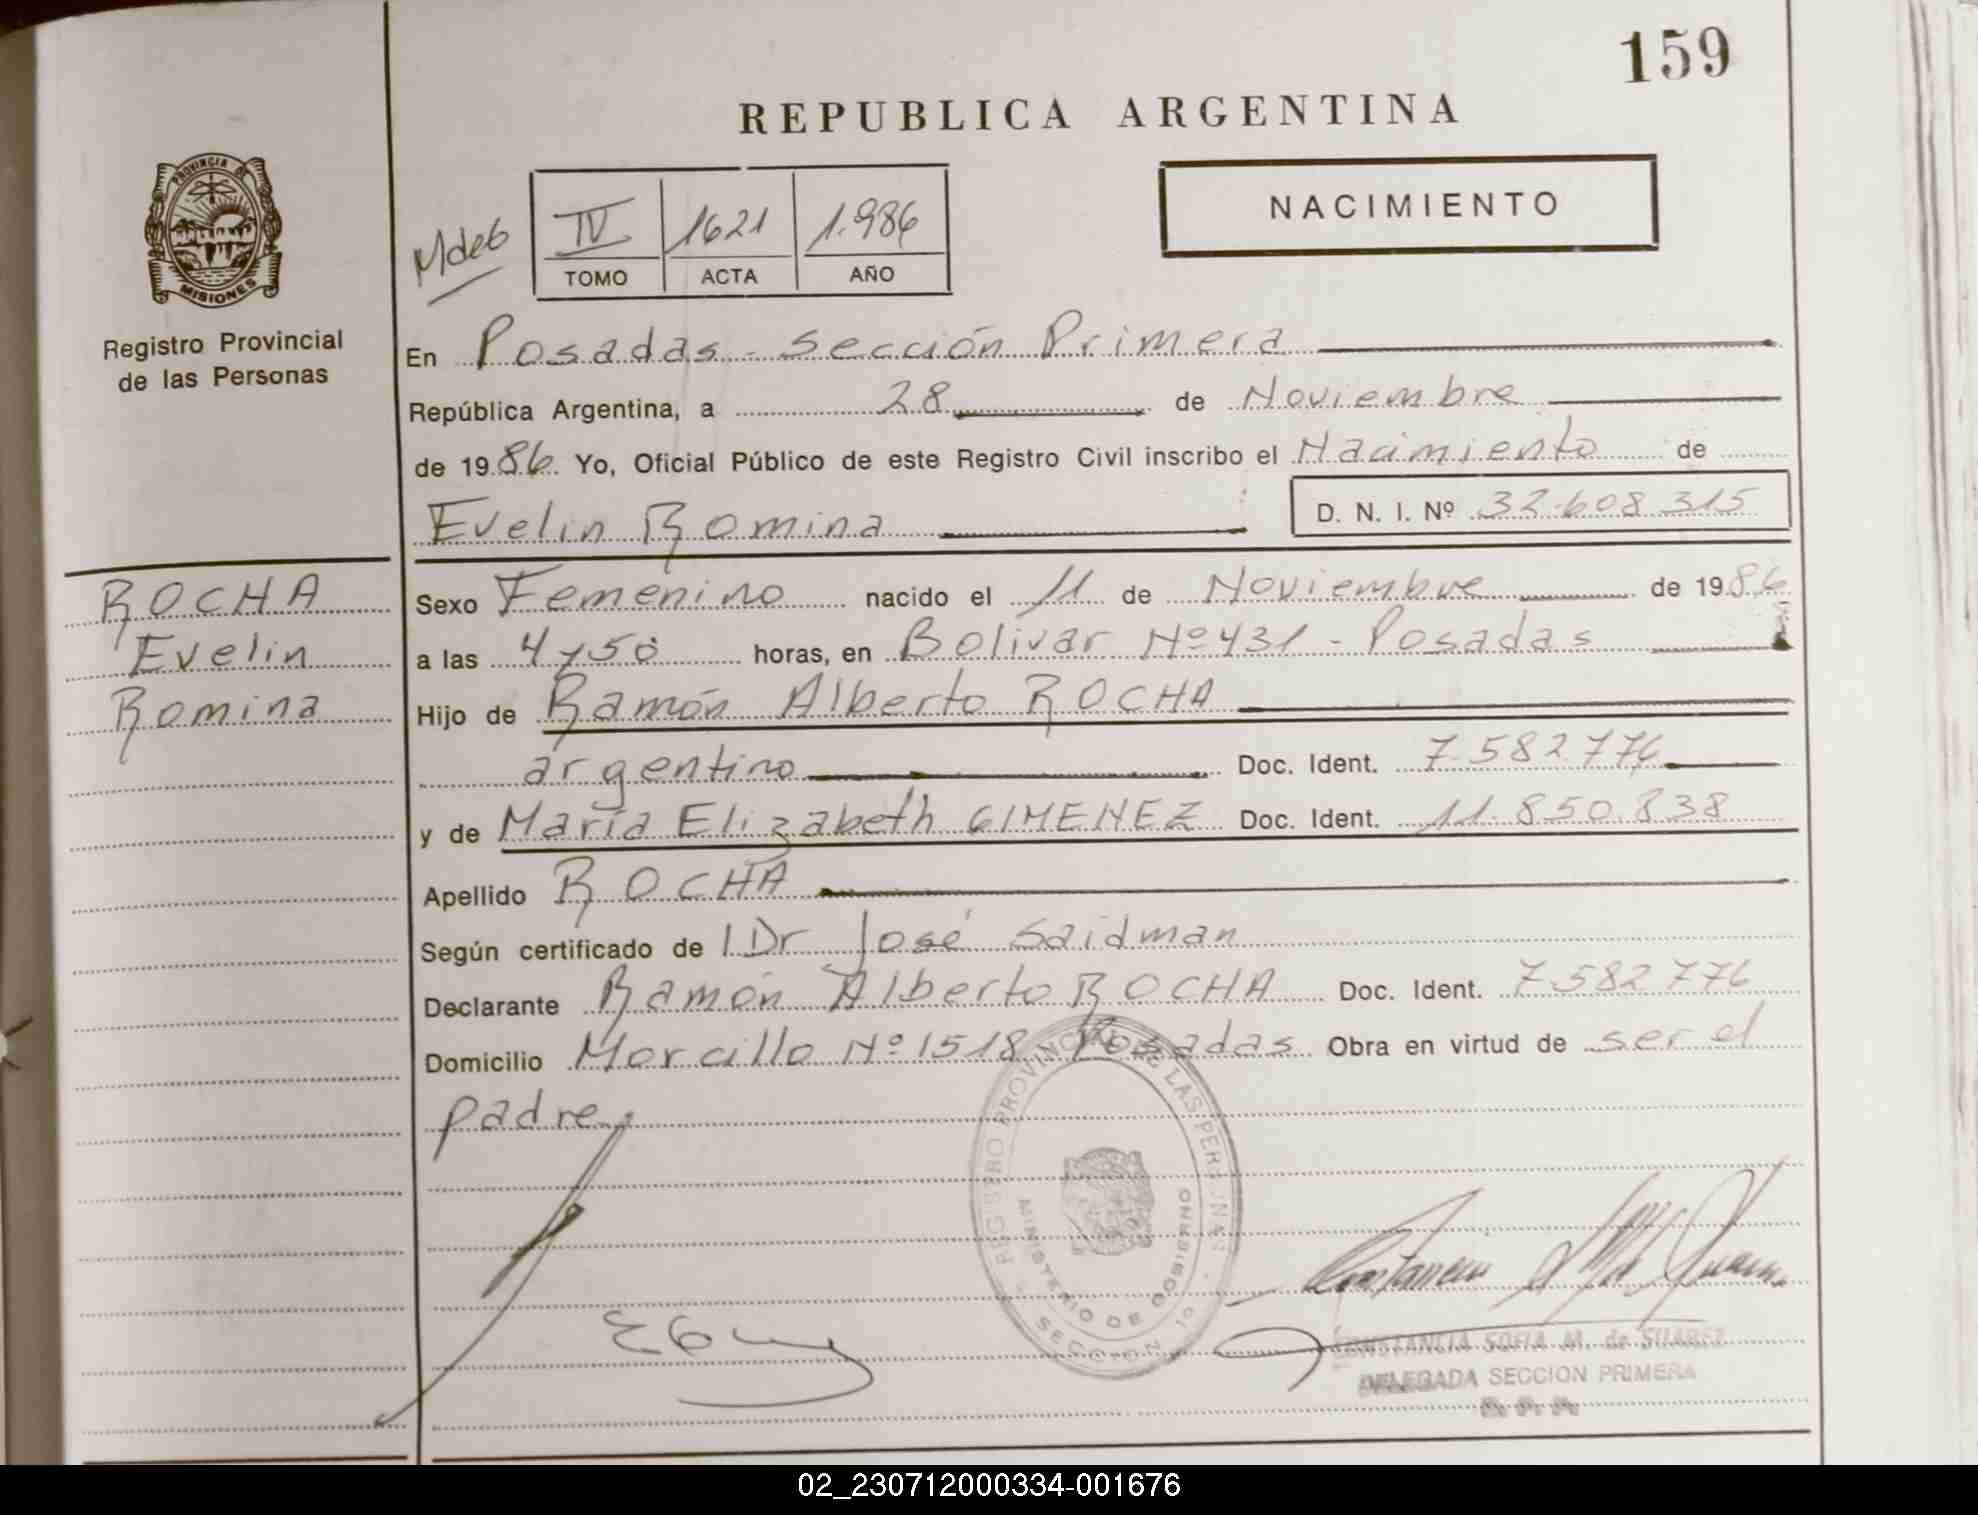 159
REPUBLICA ARGENTINA
PROVINCIA DE
MISIONES
Registro Provincial
de las Personas
NACIMIENTO
IV 1621 1.986
TOMO ACTA AÑO
En Posadas - Sección Primera
República Argentina, a 28 de Noviembre
de 1986 Yo, Oficial Público de este Registro Civil inscribo el Nacimiento de
Evelin Romina D. N. I. Nº 32.608.315
ROCHA
Evelin
Romina
Sexo Femenino nacido el 11 de Noviembre de 1986
a las 4 y 50 horas, en Bolivar Nº 431 - Posadas
Hijo de Ramón Alberto ROCHA
argentino Doc. Ident. 7.582776
y de María Elizabeth GIMENEZ Doc. Ident. 11.850.838
Apellido ROCHA
Según certificado de Dr José Saidman
Declarante Ramón Alberto ROCHA Doc. Ident. 7.582776
Domicilio Morcillo Nº 1518 Posadas Obra en virtud de ser el
padre
REGISTRO PROVINCIAL DE LAS PERSONAS
MINISTERIO DE GOBIERNO
SECCION 1º
CONSTANCIA SOFIA M. de SUAREZ
DELEGADA SECCION PRIMERA
02_230712000334-001676